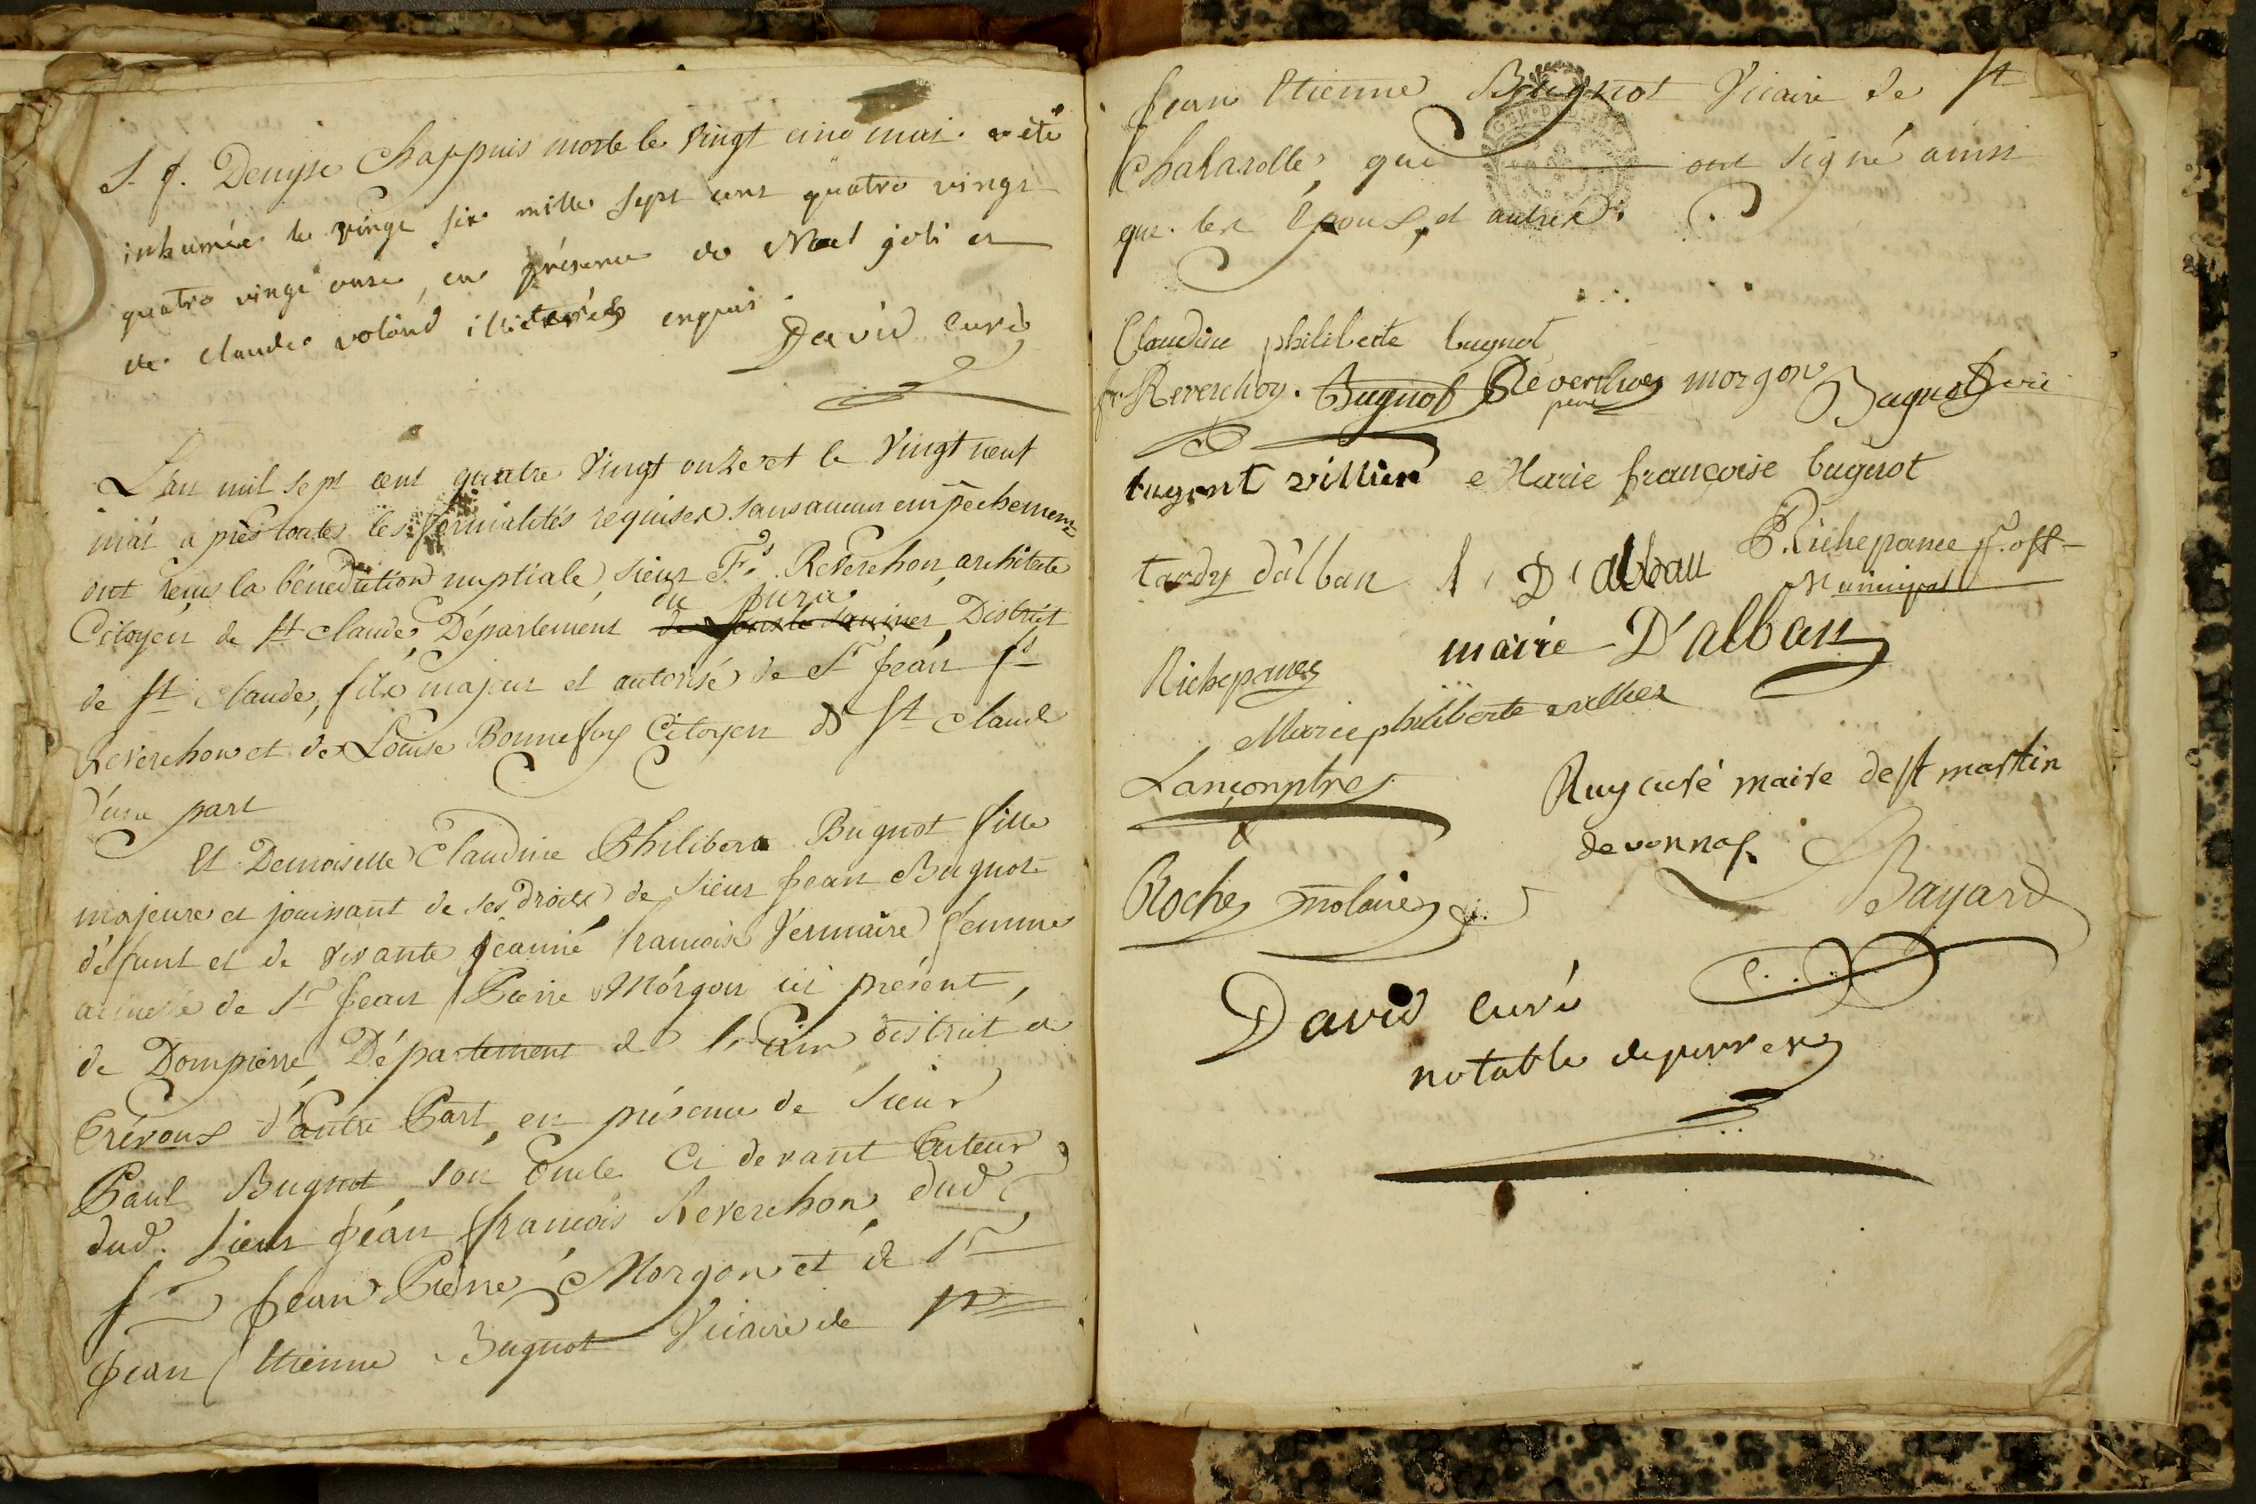 S. f. Denyse Chappuis morte le vingt cinq mai a été
inhumée le vingt six mille sept cent quatre vingt
quatre vingt onze, en présence de Noel joli et
de claude voland illiterés enquis
David curé
L'an mil sept cent quatre vingt onze et le vingt neuf
mai après toutes les formalités requises sans aucun empêchement
ont reçus la bénédiction nuptiale, sieur Fs. Reverchon architecte
Citoyen de St claude, Département de Lons le Saunier du Jura District
de St Claude, fils majeur et autorisé de Sr Jean fs
Reverchon et de Louise Bonnefoy Citoyen de St claude
d'une part
Et Demoiselle Claudine Philiberte Bugnot fille
majeure et jouissant de ses droits de sieur Jean Bugnot
défunt et de vivante Jeanne francoise Vermaire femme
de Sr Jean Pierre Morgon ici présent,
de Dompierre, Département de l'Ain district de
Trévoux d'autre Part, en présence de Sieur
Paul Bugnot son Oncle Ci devant Tuteur,
dud. Sieur Jean francois Reverchon, dud
Sr Jean Pierre Morgon et de Sr
Jean Etienne Bugnot Vicaire de
Jean Etienne Bugnot Vicaire de St
Chalarolle, qui ont signé ainsi
que les Epoux, et autres.
Claudine philiberte bugnot
fs Reverchon. Bugnot Réverchon père morgon Bugnot
bugnot villier Marie françoise bugnot
tardy d'alban D'alban Richepance p. off
Municipal
maire D'alban
Richepance
Marie philiberte villier
Lançon ptre
Ruy curé maire de st martin
devonnas
Roche notaire
Bayard
David curé
notable de perrex